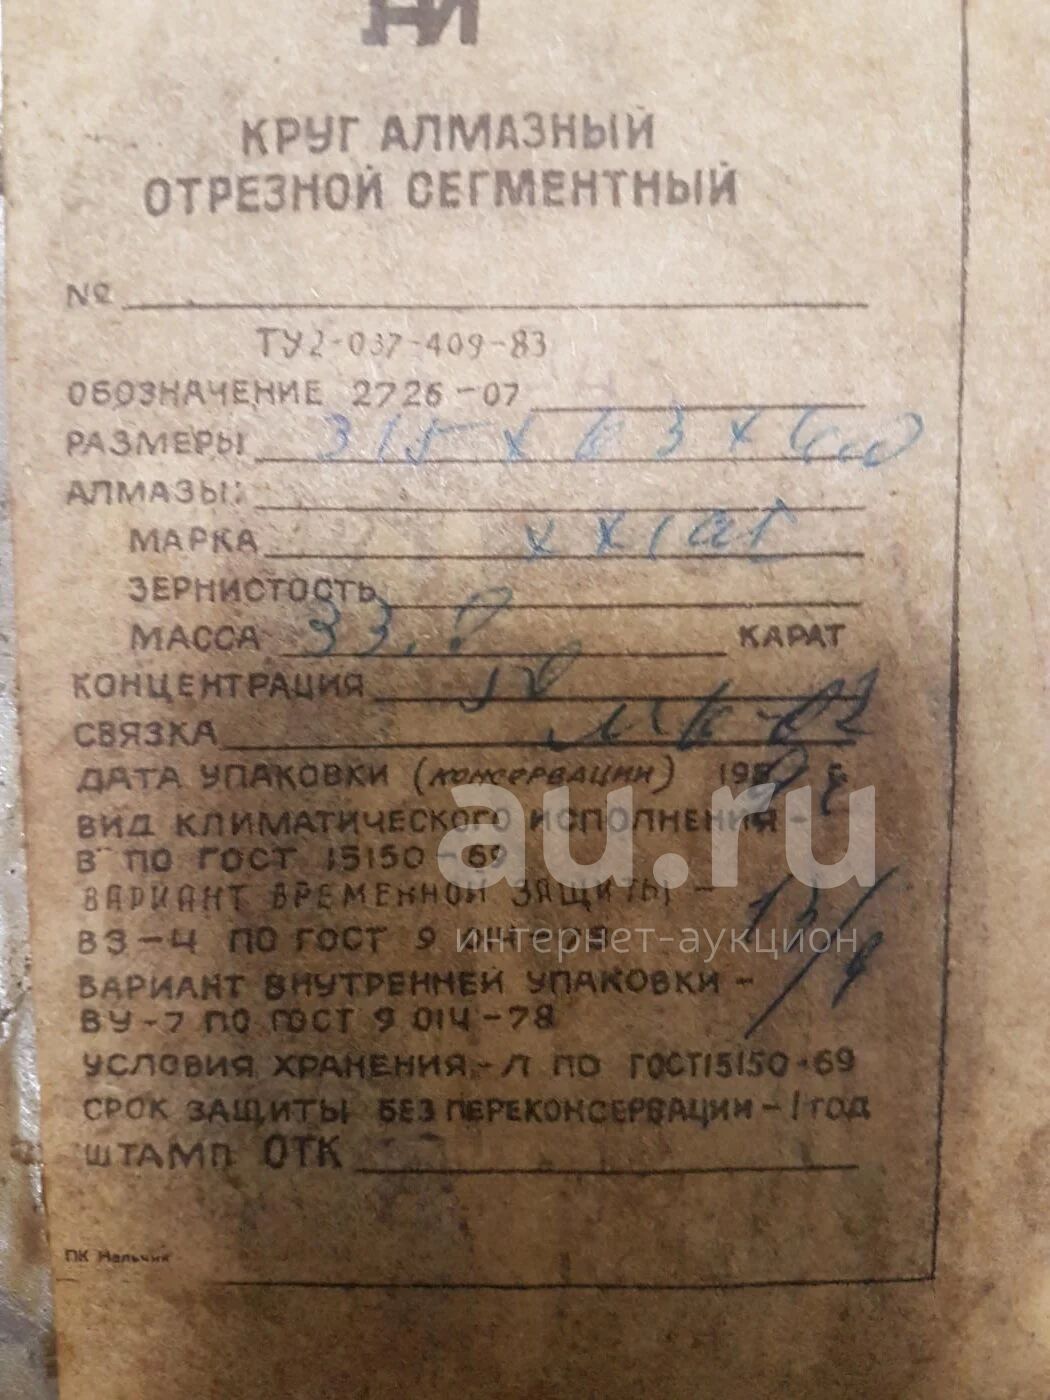 КРУГ АЛМАЗНЫЙ
ОТРЕЗНОЙ СЕГМЕНТНЫЙ
№
ТУ2-037-409-83
ОБОЗНАЧЕНИЕ 2726-07
РАЗМЕРЫ 315 х
АЛМАЗЫ:
МАРКА
ЗЕРНИСТОСТЬ
МАССА 33, КАРАТ
КОНЦЕНТРАЦИЯ
СВЯЗКА
ДАТА УПАКОВКИ (КОНСЕРВАЦИИ)
ВИД КЛИМАТИЧЕСКОГО ИСПОЛНЕНИЯ -
В ПО ГОСТ 15150-69
ВАРИАНТ ВРЕМЕННОЙ ЗАЩИТЫ -
ВЗ-4 ПО ГОСТ 9 014-78
ВАРИАНТ ВНУТРЕННЕЙ УПАКОВКИ -
ВУ-7 ПО ГОСТ 9 014-78
УСЛОВИЯ ХРАНЕНИЯ-Л ПО ГОСТ15150-69
СРОК ЗАЩИТЫ БЕЗ ПЕРЕКОНСЕРВАЦИИ-1 ГОД
ШТАМП ОТК
ПК Нальчик
au.ru
интернет-аукцион